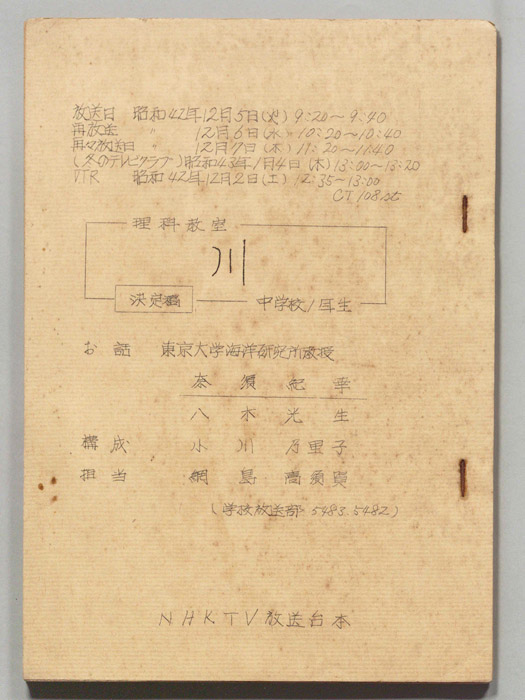 放送日 昭和42年12月5日(火) 9:20～9:40
再放送 〃 12月6日(水) 10:20～10:40
再々放送日 〃 12月7日(木) 11:20～11:40
(冬のテレビクラブ) 昭和43年1月4日(木) 13:00～13:20
VTR 昭和42年12月2日(土) 12:35～13:00
CT 108.st
理科教室
川
決定稿 中学校1年生
お話 東京大学海洋研究所教授
奈須紀幸
八木光生
構成 小川乃里子
担当 網島 高須賀
(学校放送部 5483.5482)
NHKTV放送台本